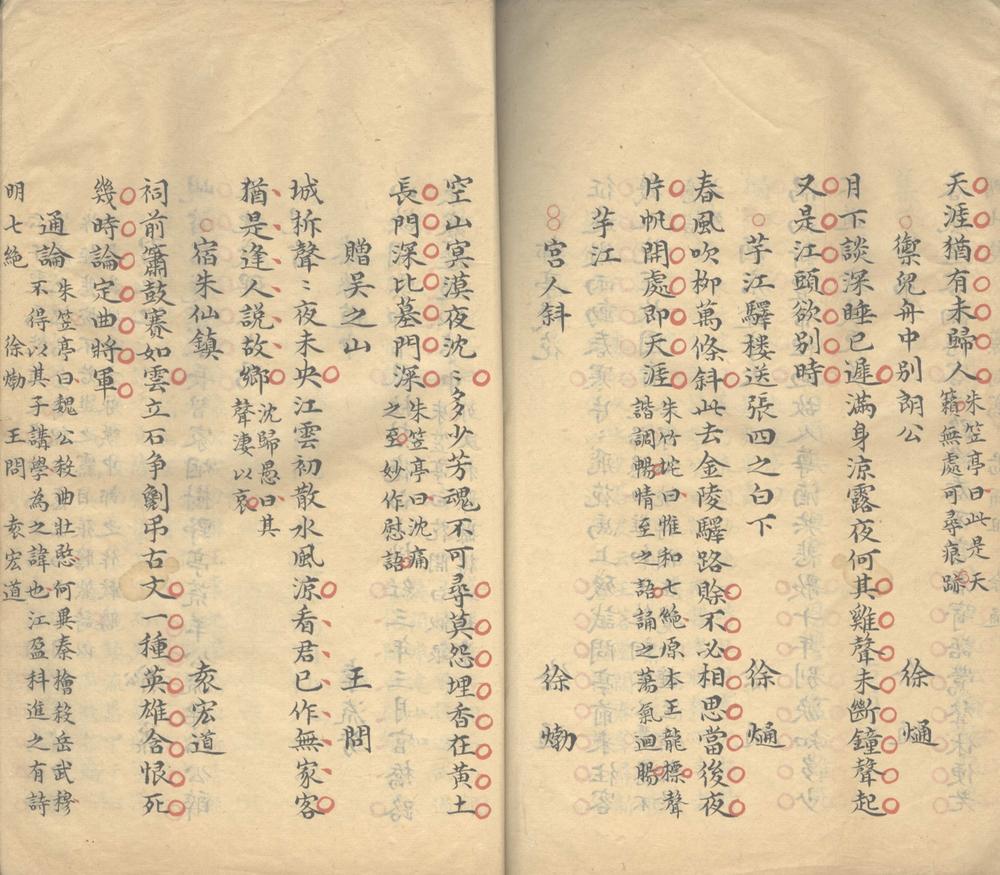 天涯猶有未歸人
朱笠亭曰此是天
籟無處可尋痕跡
禦兒舟中別朗公
徐㷿
月下談深睡已遲滿身涼露夜何其雞聲未斷鐘聲起
又是江頭欲別時
芋江驛楼送張四之白下
徐㷿
春風吹柳萬條斜此去金陵驛路賖不必相思當後夜
片帆開處即天涯
朱竹垞曰惟和七絶原本王龍標聲
諧調暢情至之語誦之蕩氣迴腸
芋江
宮人斜
徐𤊹
空山冥漠夜沈沈多少芳魂不可尋莫怨埋香在黄土
長門深比墓門深
朱笠亭曰沈痛
之至妙作慰語
贈吴之山
王問
城柝聲〻夜未央江雲初散水風涼看君已作無家客
猶是逢人説故鄉
沈歸愚曰其
聲淒以哀
宿朱仙鎮
袁宏道
祠前簫鼓賽如雲立石争劖弔古文一種英雄含恨死
幾時論定曲將軍
通論
朱笠亭曰魏公殺曲壯愍何異秦檜殺岳武穆
不得以其子講學為之諱也江盈科進之有詩
明七絶 徐𤊹 王問 袁宏道